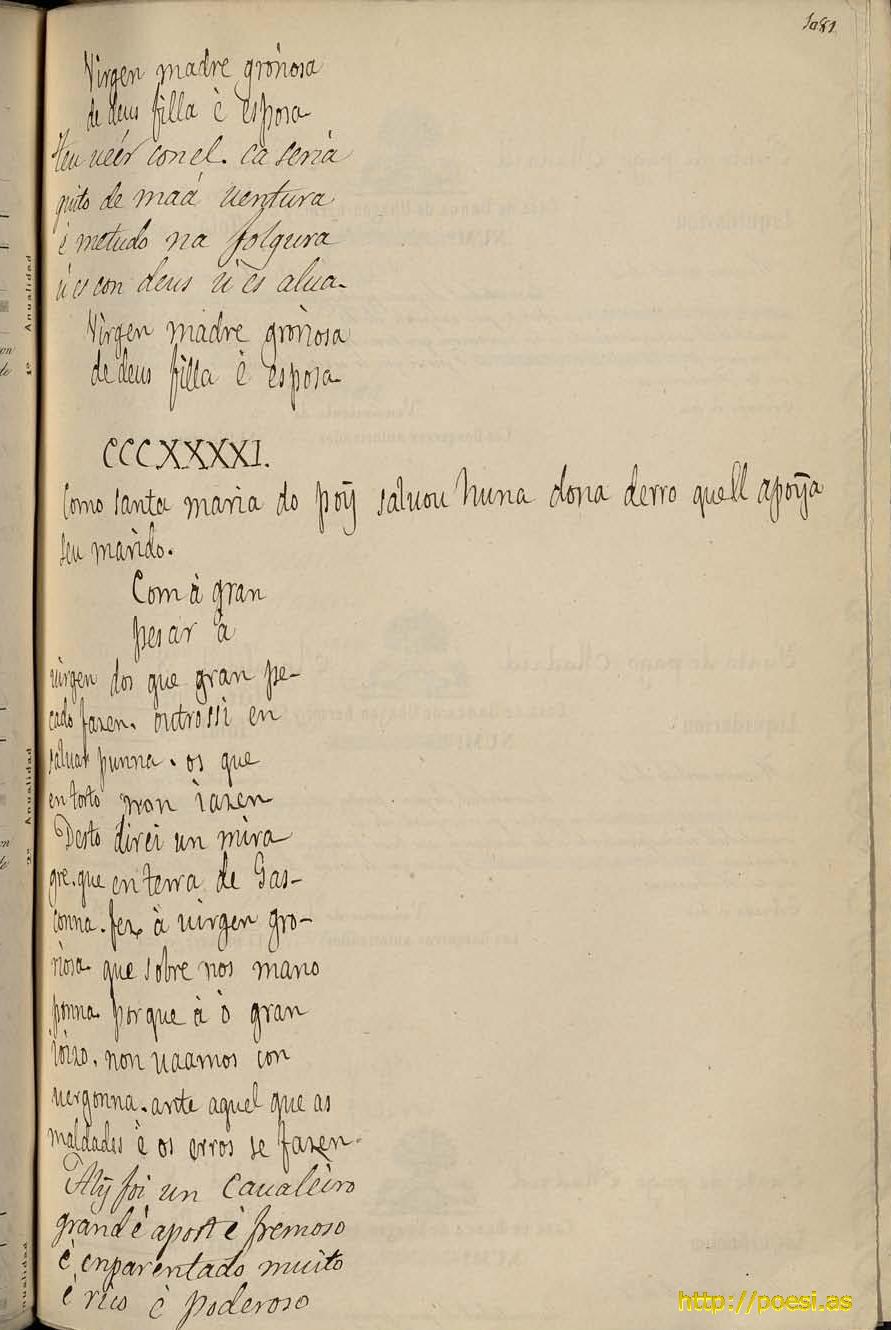 1081
Virgen madre groriosa
de deus filla è esposa
teu ueér con el. ca seria
quito de maá uentura
è metudo na folgura
ú es con deus ú es alua.
Virgen madre groriosa
de deus filla è esposa
CCCXXXXI.
Como santa maria do poỹ saluou huna dona derro quell apoỹa
seu marido.
Com à gran
pesar à
uirgen dos que gran pe-
cado fazen. outrossi en
saluar punna. os que
en torto non iazen
Desto direi un mira
gre. que en terra de Gas-
conna. fez à uirgen gro-
riosa que sobre nos mano
ponna porque à ò gran
ioizo. non uaamos con
uergonna. ante aquel que as
maldades è os erros se fazen.
Alỹ foi un Caualeiro
grand è apost è fremoso
è enparentado muito
è rico è poderoso
1ª Anualidad
2ª Anualidad
http://poesi.as